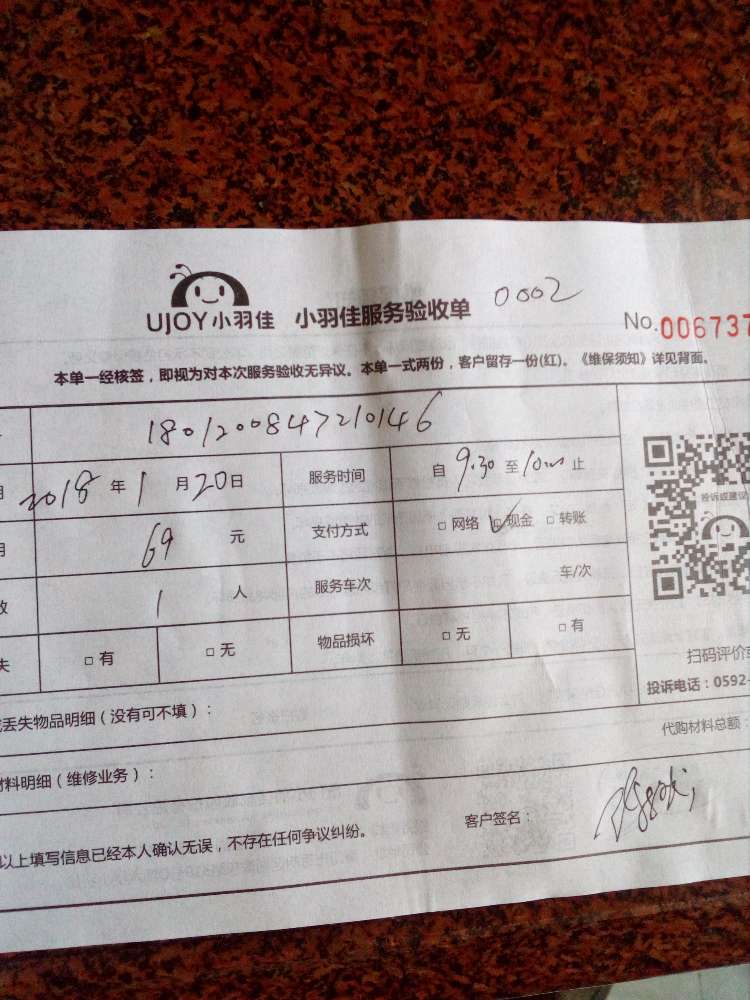 UJOY小羽佳 小羽佳服务验收单 0002
No.006737
本单一经核签，即视为对本次服务验收无异议。本单一式两份，客户留存一份(红)。《维保须知》详见背面。
1801200847210146
2018年1月20日 服务时间 自9:30至10:00止
投诉或建议
69元 支付方式 □网络 ☑现金 □转账
1人 服务车次 车/次
□有 □无 物品损坏 □无 □有
扫码评价
投诉电话：0592-
丢失物品明细（没有可不填）：
代购材料总额：
材料明细（维修业务）：
客户签名：
以上填写信息已经本人确认无误，不存在任何争议纠纷。